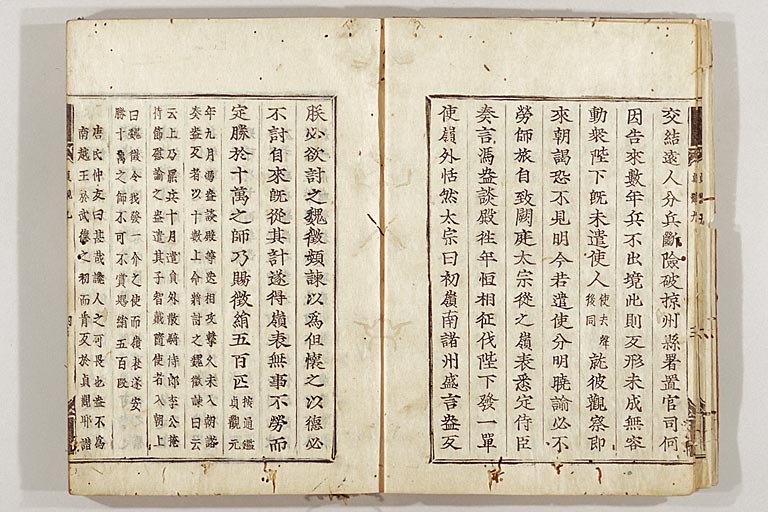 交結遠人分兵斷險破掠州縣署置官司何
因告來數年兵不出境此則反形未成無容
動衆陛下旣未遣使人使去聲後同就彼觀察卽
來朝謁恐不見明今若遣使分明曉諭必不
勞師旅自致闕庭太宗從之嶺表悉定侍臣
奏言馮盎談殿徃年恒相征伐陛下發一單
使嶺外恬然太宗曰初嶺南諸州盛言盎反
朕必欲討之魏徵頻諫以爲但懷之以德必
不討自來旣從其計遂得嶺表無事不勞而
定勝於十萬之師乃賜徵絹五百匹按通鑑貞觀元
年九月馮盎談殿等迭相攻擊久未入朝諸
奏盎反者以十數上命將討之魏徵諫曰云
云上乃罷兵十月遣員外散騎侍郎李公掩
持節慰諭之盎遣其子智戴隨使者入朝上
曰魏徵令我發一介之使而嶺表遂安
勝十萬之師不可不賞賜絹五百匹
唐氏仲友曰甚哉讒人之可畏也盎不爲
南越王於武德之初而肯反於貞觀耶諸